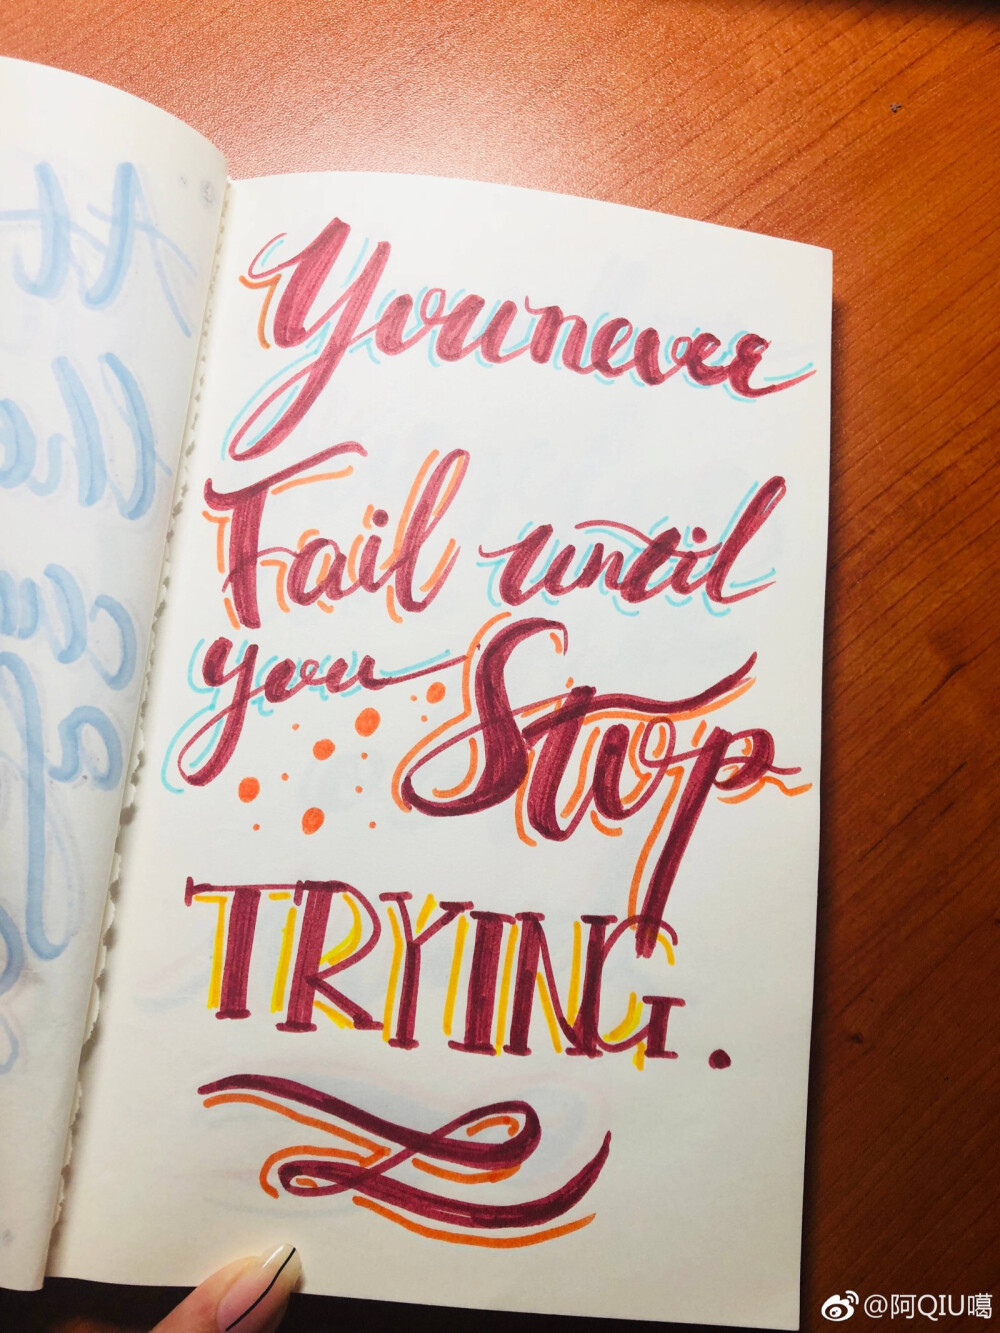 You never
Fail until
you Stop
TRYING.
At
cal
@阿QIU噶